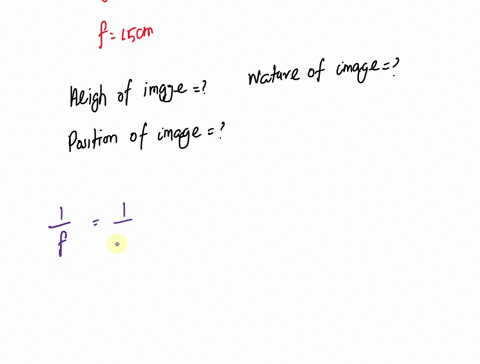 f = 15cm
Heigh of imgge = ?
Nature of image = ?
Position of image = ?
1/f = 1/